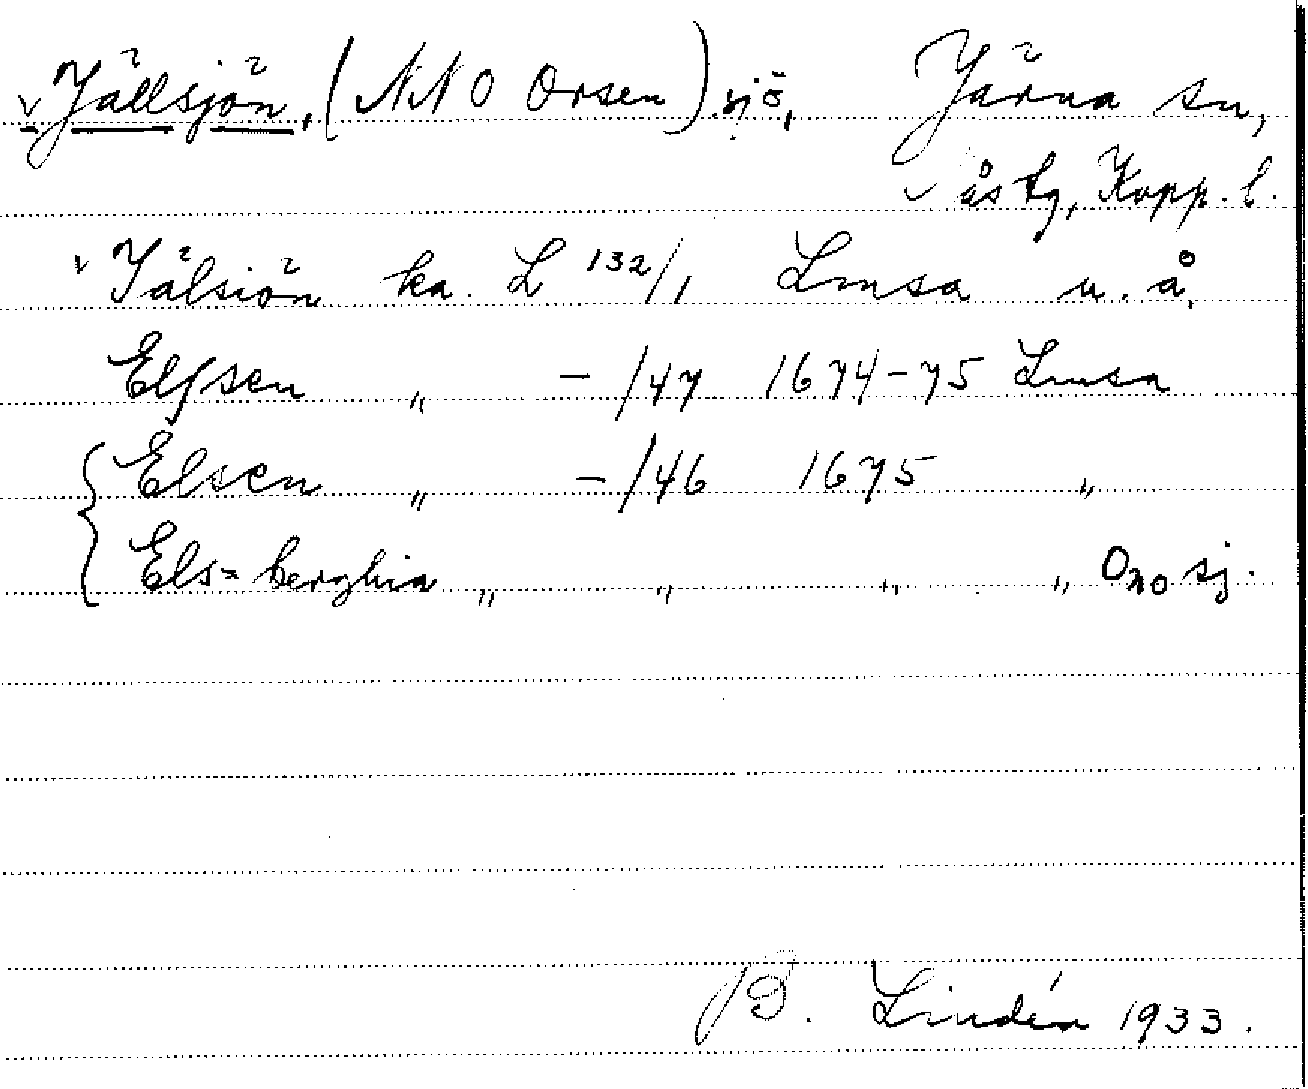 v Jällsjön, (NNO Orsen) sjö, Järna sn,
v ås tg, Kopp. l.
v Jälsiön ka. L 132/1 Lmsa u. å.
Elfsen " - /47 1674-75 Lmsa
Elsen " - /46 1675 "
Els= berghia " " " " Ono sj.
B. Lindén 1933.